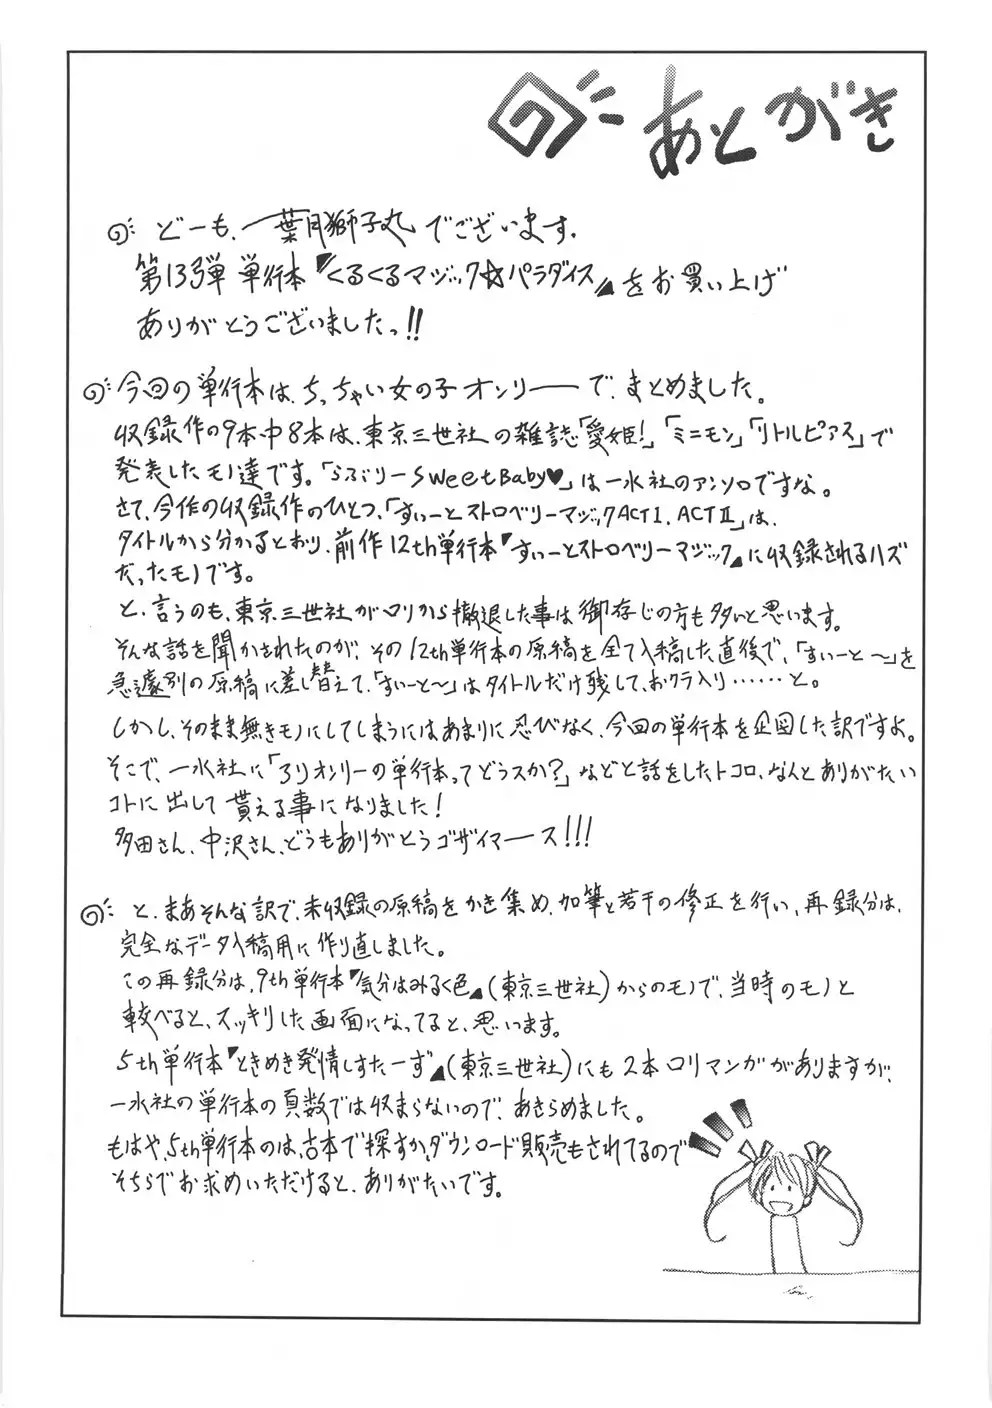 あとがき
どーも、葉月獅子丸でございます。
第13弾単行本『くるくるマジック☆パラダイス』をお買い上げ
ありがとうございましたっ!!
今回の単行本は、ちっちゃい女の子オンリーーで、まとめました。
収録作の9本中8本は、東京三世社の雑誌「愛姫!」「ミニモン」「リトルピアス」で
発表したモノ達です。「らぶりーSweetBaby♥」は一水社のアンソロですな。
さて、今作の収録作のひとつ、「すぃーとストロベリーマジックACTⅠ.ACTⅡ」は、
タイトルから分かるとおり、前作12th単行本『すぃーとストロベリーマジック』に収録されるハズ
だったモノです。
と、言うのも、東京三世社がロリから撤退した事は御存じの方も多いと思います。
そんな話を聞かされたのが、その12th単行本の原稿を全て入稿した直後で、「すぃーと〜」を
急遽別の原稿に差し替えて、「すぃーと〜」はタイトルだけ残して、おクラ入り……と。
しかし、そのまま無きモノにしてしまうにはあまりに忍びなく、今回の単行本を企図した訳ですよ。
そこで、一水社に「ろりオンリーの単行本ってどうスか?」などと話をしたトコロ、なんとありがたい
コトに出して貰える事になりました!
多田さん、中沢さん、どうもありがとうゴザイマース!!!
と、まあそんな訳で、未収録の原稿をかき集め、加筆と若干の修正を行い、再録分は、
完全なデータ入稿用に作り直しました。
この再録分は、9th単行本『気分はみるく色』(東京三世社)からのモノで、当時のモノと
較べると、スッキリした画面になってると、思います。
5th単行本『ときめき発情すたーず』(東京三世社)にも2本ロリマンガがありますが、
一水社の単行本の頁数では収まらないので、あきらめました。
もはや、5th単行本のは、古本で探すか、ダウンロード販売もされてるので
そちらでお求めいただけると、ありがたいです。